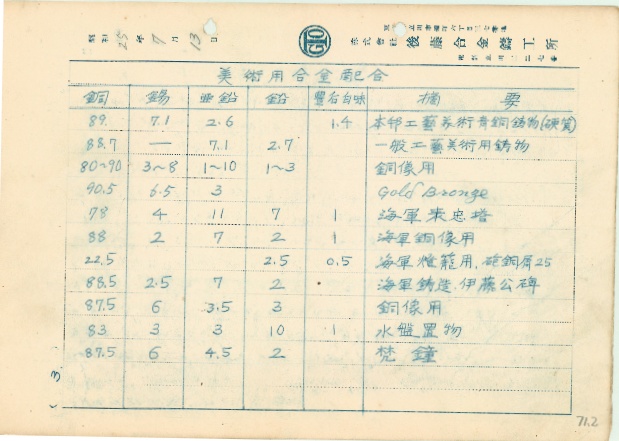 昭和 25 年 7 月 13 日
株式會社 後藤合金鑄工所
GTO
美術用合金配合
銅 錫 亜鉛 鉛 摘要
89. 7.1 2.6 1.4 本邦工藝美術青銅鋳物(硬質)
88.7 — 7.1 2.7 一般工藝美術用鋳物
80~90 3~8 1~10 1~3 銅像用
90.5 6.5 3 Gold Bronge
78 4 11 7 1 海軍 忠塔
88 2 7 2 1 海軍銅像用
22.5 2.5 0.5 海軍燈籠用、砲銅屑25
88.5 2.5 7 2 海軍鋳造、伊藤公碑
87.5 6 3.5 3 銅像用
83 3 3 10 1 水盤置物
87.5 6 4.5 2 梵鐘
3.
71.2